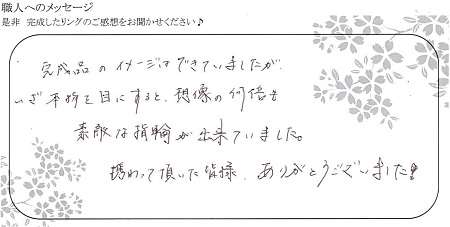 職人へのメッセージ
是非 完成したリングのご感想をお聞かせください♪
完成品のイメージはできていましたが、
いざ本物を目にすると、想像の何倍も
素敵な指輪が出来ていました。
携わって頂いた皆様、ありがとうございました!